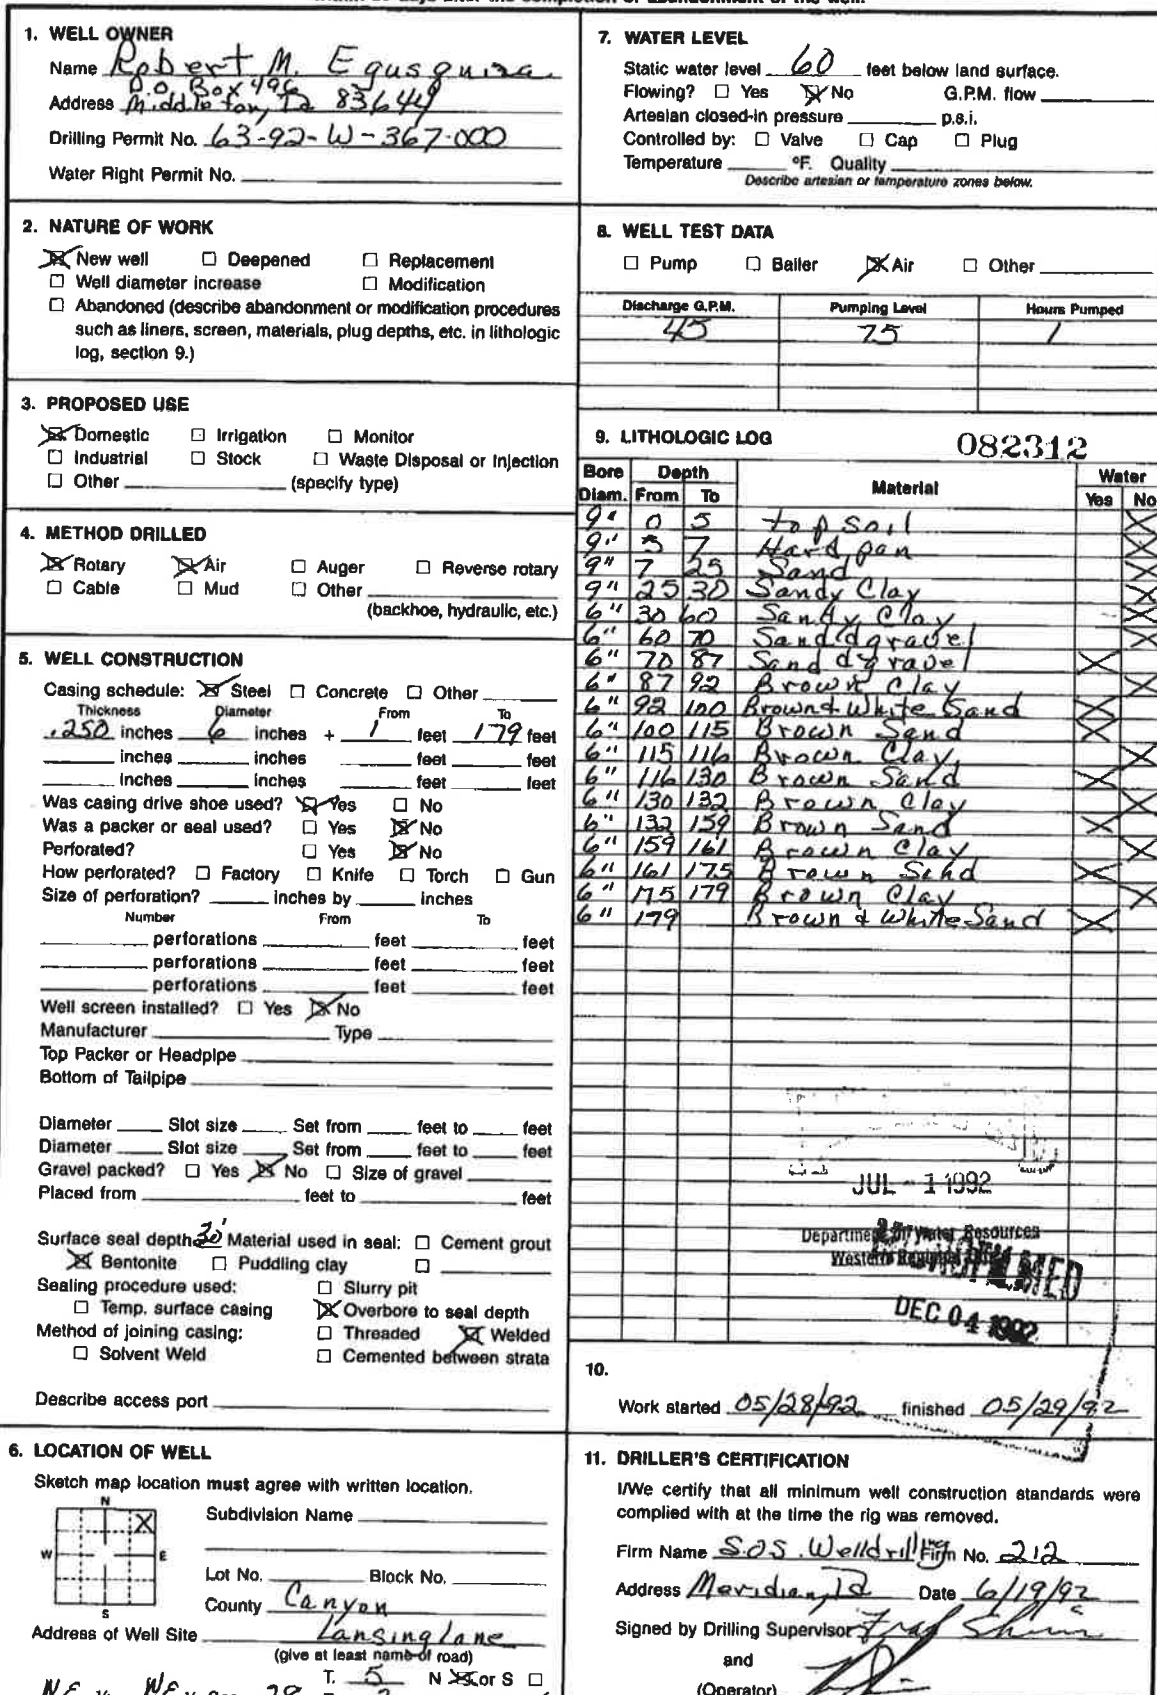 1. WELL OWNER
Name Robert M. Egusquiza
P.O. Box 496
Address Middleton, Id 83644
Drilling Permit No. 63-92-W-367-000
Water Right Permit No.
2. NATURE OF WORK
New well Deepened Replacement
Well diameter increase Modification
Abandoned (describe abandonment or modification procedures
such as liners, screen, materials, plug depths, etc. in lithologic
log, section 9.)
3. PROPOSED USE
Domestic Irrigation Monitor
Industrial Stock Waste Disposal or Injection
Other (specify type)
4. METHOD DRILLED
Rotary Air Auger Reverse rotary
Cable Mud Other
(backhoe, hydraulic, etc.)
5. WELL CONSTRUCTION
Casing schedule: Steel Concrete Other
Thickness Diameter From To
.250 inches 6 inches + 1 feet 179 feet
inches inches feet feet
inches inches feet feet
Was casing drive shoe used? Yes No
Was a packer or seal used? Yes No
Perforated? Yes No
How perforated? Factory Knife Torch Gun
Size of perforation? inches by inches
Number From To
perforations feet feet
perforations feet feet
perforations feet feet
Well screen installed? Yes No
Manufacturer Type
Top Packer or Headpipe
Bottom of Tailpipe
Diameter Slot size Set from feet to feet
Diameter Slot size Set from feet to feet
Gravel packed? Yes No Size of gravel
Placed from feet to feet
Surface seal depth 30' Material used in seal: Cement grout
Bentonite Puddling clay
Sealing procedure used: Slurry pit
Temp. surface casing Overbore to seal depth
Method of joining casing: Threaded Welded
Solvent Weld Cemented between strata
Describe access port
6. LOCATION OF WELL
Sketch map location must agree with written location.
N
W E
S
Subdivision Name
Lot No. Block No.
County Canyon
Address of Well Site Lansing Lane
(give at least name of road)
T. 5 N or S
7. WATER LEVEL
Static water level 60 feet below land surface.
Flowing? Yes No G.P.M. flow
Artesian closed-in pressure p.s.i.
Controlled by: Valve Cap Plug
Temperature °F. Quality
Describe artesian or temperature zones below.
8. WELL TEST DATA
Pump Bailer Air Other
Discharge G.P.M. Pumping Level Hours Pumped
45 75 1
9. LITHOLOGIC LOG 082312
Bore Depth Material Water
Diam. From To Yes No
9" 0 5 top soil X
9" 5 7 Hard pan X
9" 7 25 Sand X
9" 25 30 Sandy Clay X
6" 30 60 Sandy Clay X
6" 60 70 Sand & gravel X
6" 70 87 Sand & gravel X
6" 87 92 Brown Clay X
6" 92 100 Brown & White Sand X
6" 100 115 Brown Sand X
6" 115 116 Brown Clay X
6" 116 130 Brown Sand X
6" 130 132 Brown Clay X
6" 132 159 Brown Sand X
6" 159 161 Brown Clay X
6" 161 175 Brown Sand X
6" 175 179 Brown Clay X
6" 179 Brown & White Sand X
JUL - 1 1992
Department of Water Resources
Western Regional
DEC 04 1992
10.
Work started 05/28/92 finished 05/29/92
11. DRILLER'S CERTIFICATION
I/We certify that all minimum well construction standards were
complied with at the time the rig was removed.
Firm Name S.O.S. Welldrilling Inc Firm No. 212
Address Meridian, Id Date 6/19/92
Signed by Drilling Supervisor
and
(Operator)